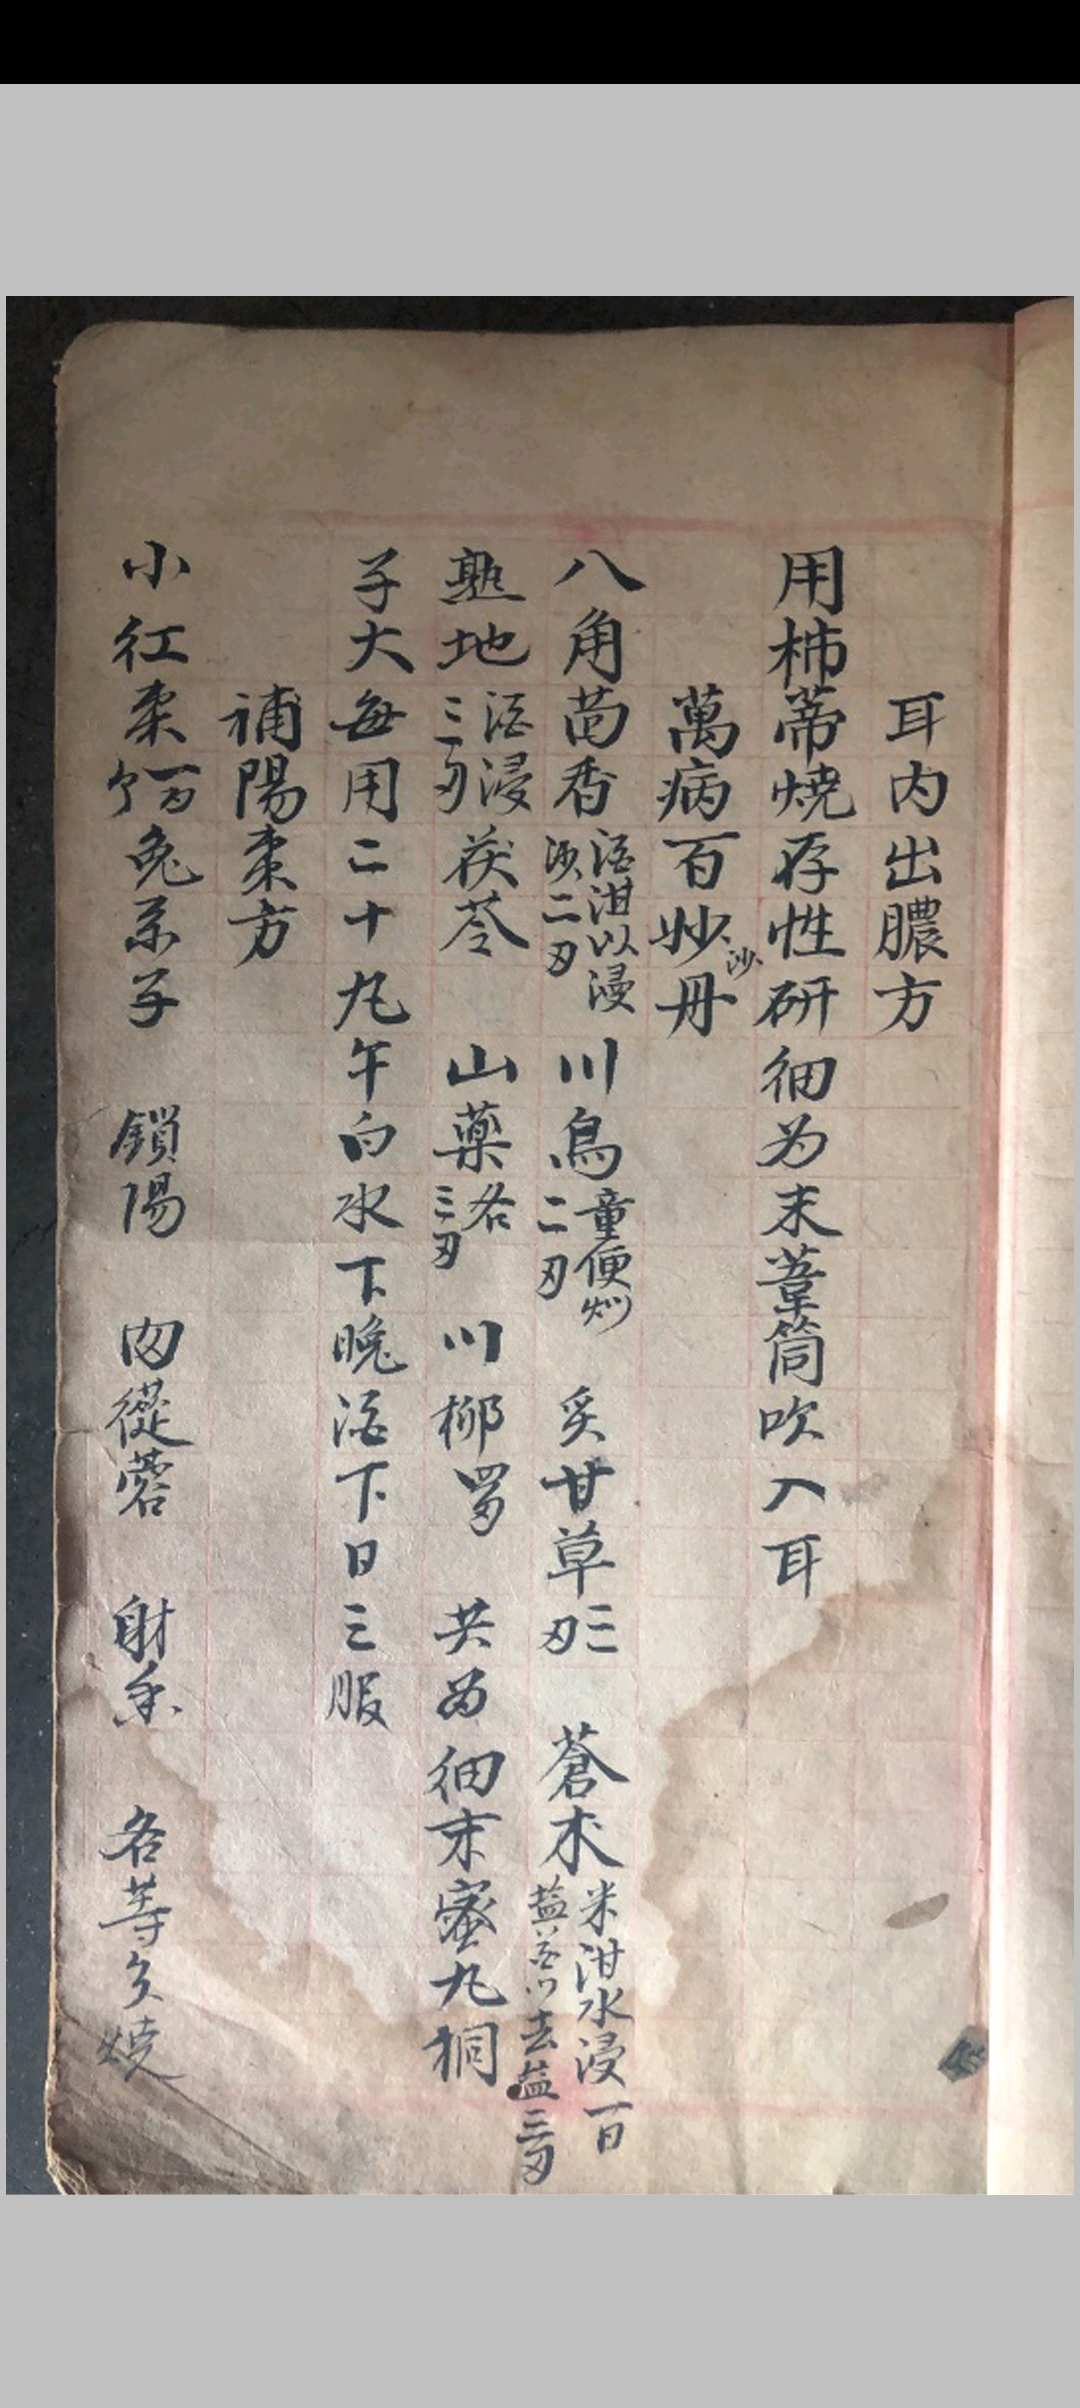 耳内出膿方
用柿蒂燒存性研細为末葦筒吹入耳
萬病百妙丹
沙
八角茴香酒泔以浸 二刃 川烏童便炒二刃 炙甘草二刃 蒼术米泔水浸一日 去盐三刃
熟地酒浸三刃茯苓 山藥各三刃 川柳 共为細末蜜丸桐
子大每用二十丸午白水下晚酒下日三服
補陽棗方
小红枣一百个兔系子 鎖陽 肉蓯蓉 射香 各等 燒